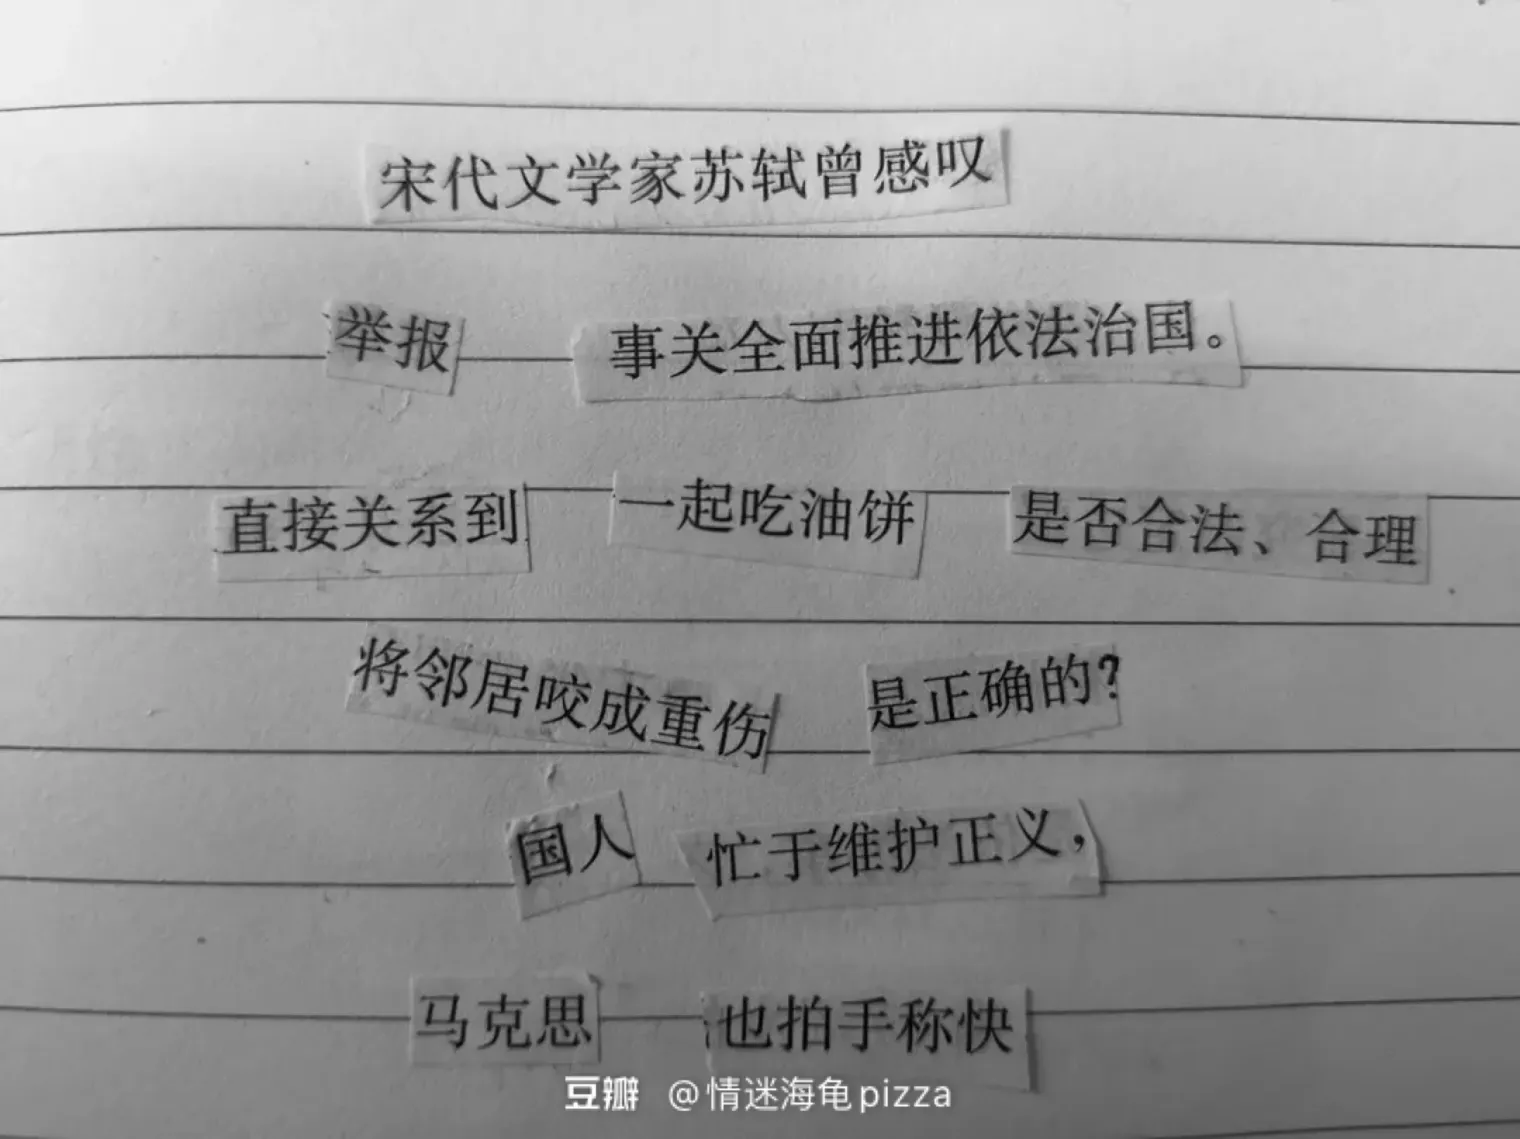 宋代文学家苏轼曾感叹
举报 事关全面推进依法治国。
直接关系到 一起吃油饼 是否合法、合理
将邻居咬成重伤 是正确的?
国人 忙于维护正义，
马克思 也拍手称快
豆瓣 @情迷海龟pizza